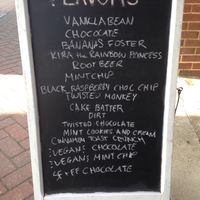 FLAVORS
VANILLA BEAN
CHOCOLATE
BANANAS FOSTER
KIRA THE RAINBOW PRINCESS
ROOT BEER
MINT CHIP
BLACK RASPBERRY CHOC CHIP
TWISTED MONKEY
CAKE BATTER
DIRT
TWISTED CHOCOLATE
MINT COOKIES AND CREAM
CINNAMON TOAST CRUNCH
VEGAN CHOCOLATE
VEGAN MINT CHIP
CHOCOLATE